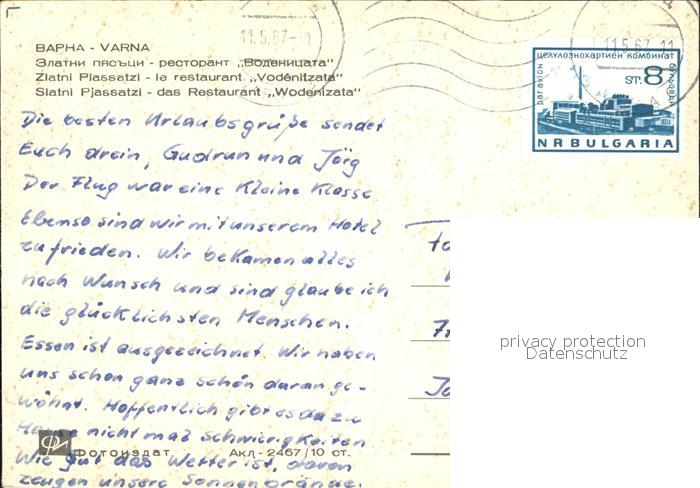 ВАРНА - VARNA
Златни пясъци - ресторант „Воденицата"
Zlatni Plassatzi - le restaurant „Vodénitzata"
Slatni Pjassatzi - das Restaurant „Wodenizata"
11.5.67-11
11.5.67 11
целулознохартиен комбинат
par avion
ST. 8
N R BULGARIA
Die besten Urlaubsgrüße sendet
Euch drein, Gudrun und Jörg
Der Flug war eine Kleine Klasse
Ebenso sind wir mit unserem Hotel
zufrieden. Wir bekamen alles
nach Wunsch und sind glaube ich
die glücklichsten Menschen.
Essen ist ausgezeichnet. Wir haben
uns schon ganz schön daran ge-
wöhnt. Hoffentlich gibt es da zu
Hause nicht mal Schwirigkeiten
Wie gut das Wetter ist, davon
zeugen unsere Sonnenbrände.
Фотоиздат Акл - 2467/10 ст.
privacy protection
Datenschutz